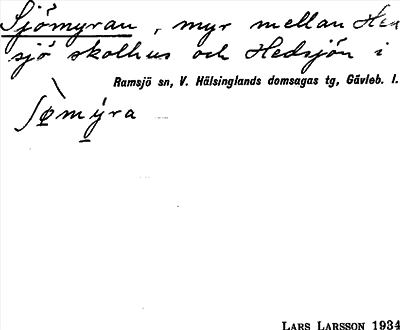 Sjömyran, myr mellan Hed
sjö skolhus och Hedsjön i
Ramsjö sn, V. Hälsinglands domsagas tg, Gävleb. l.
ʃø̀mýra
LARS LARSSON 1934